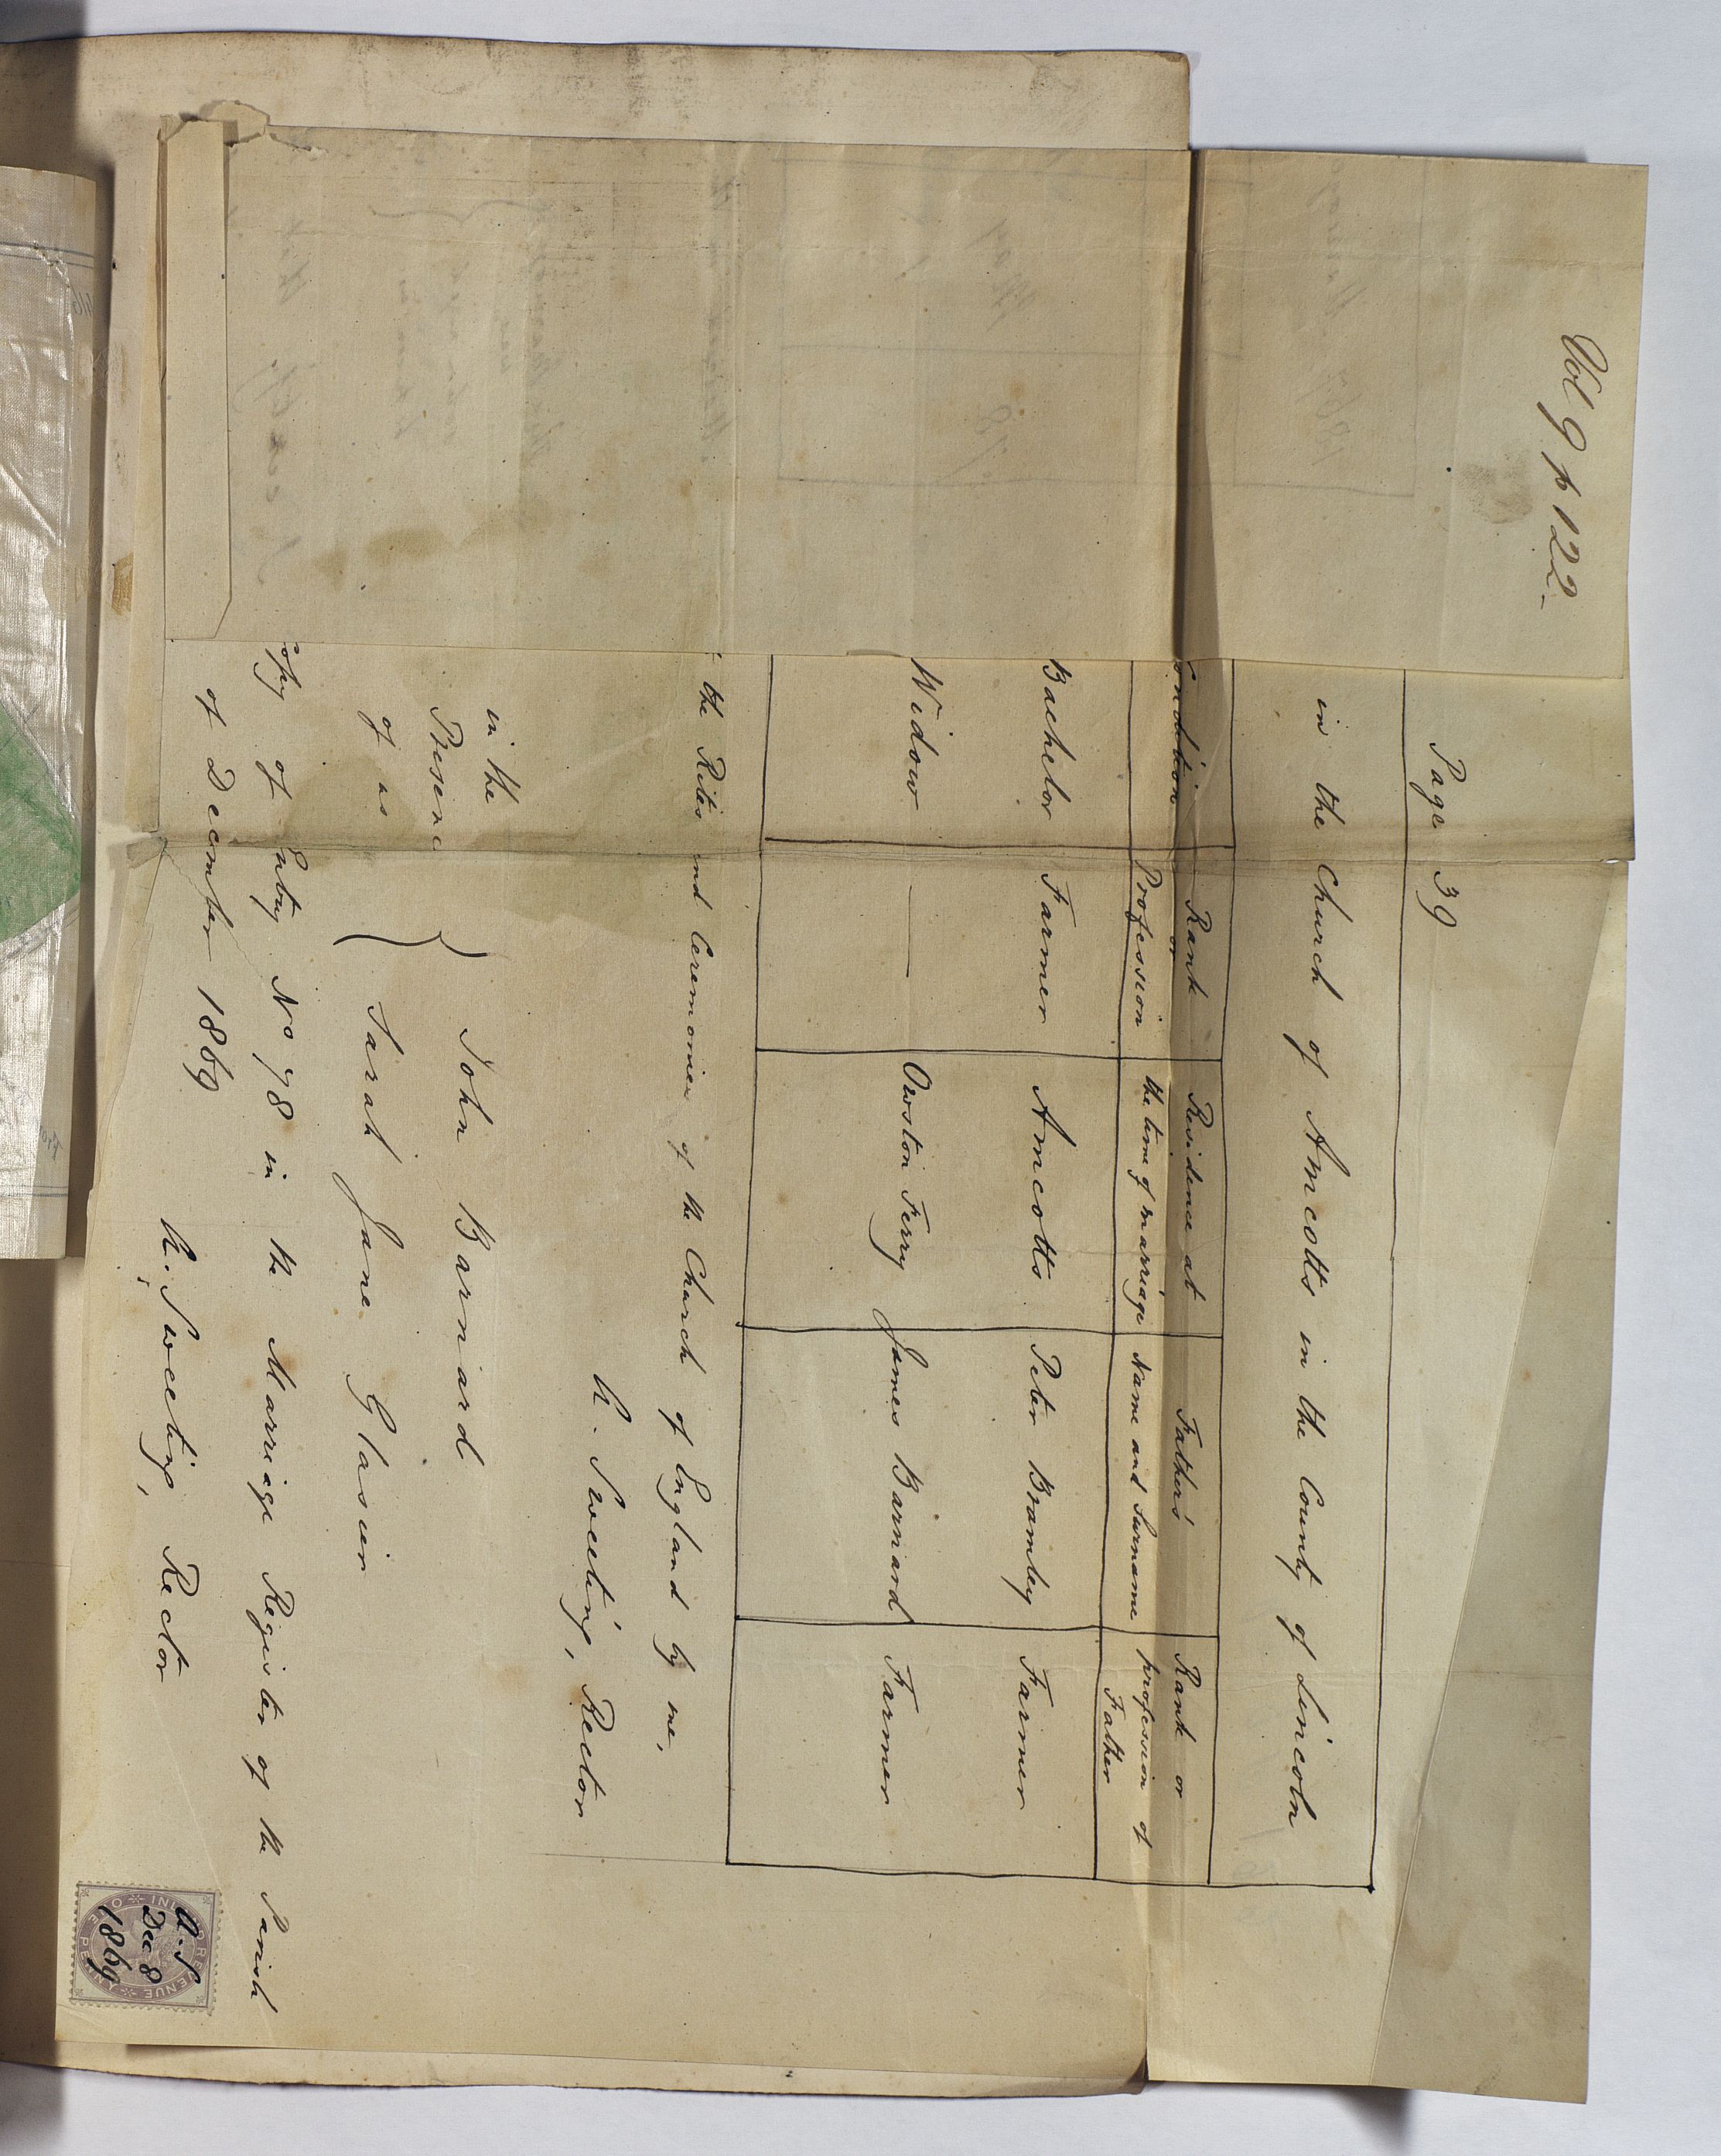 Vol 9 p 122-
Page 39
in the Church of Amcotts in the County of Lincoln
Rank or Profession
Residence at the time of marriage
Father's Name and Surname
Rank or profession of Father
Bachelor Farmer Amcotts Peter Bramley Farmer
Widow — Owston Ferry James Barnard Farmer
the Rites and Ceremonies of the Church of England by me,
Sweeting, Rector
in the Presence of us
John Barnard
Sarah Jane Glasier
Copy of Entry No 78 in the Marriage Register of the Parish
of December 1869
Sweeting, Rector
Dec 8
1869